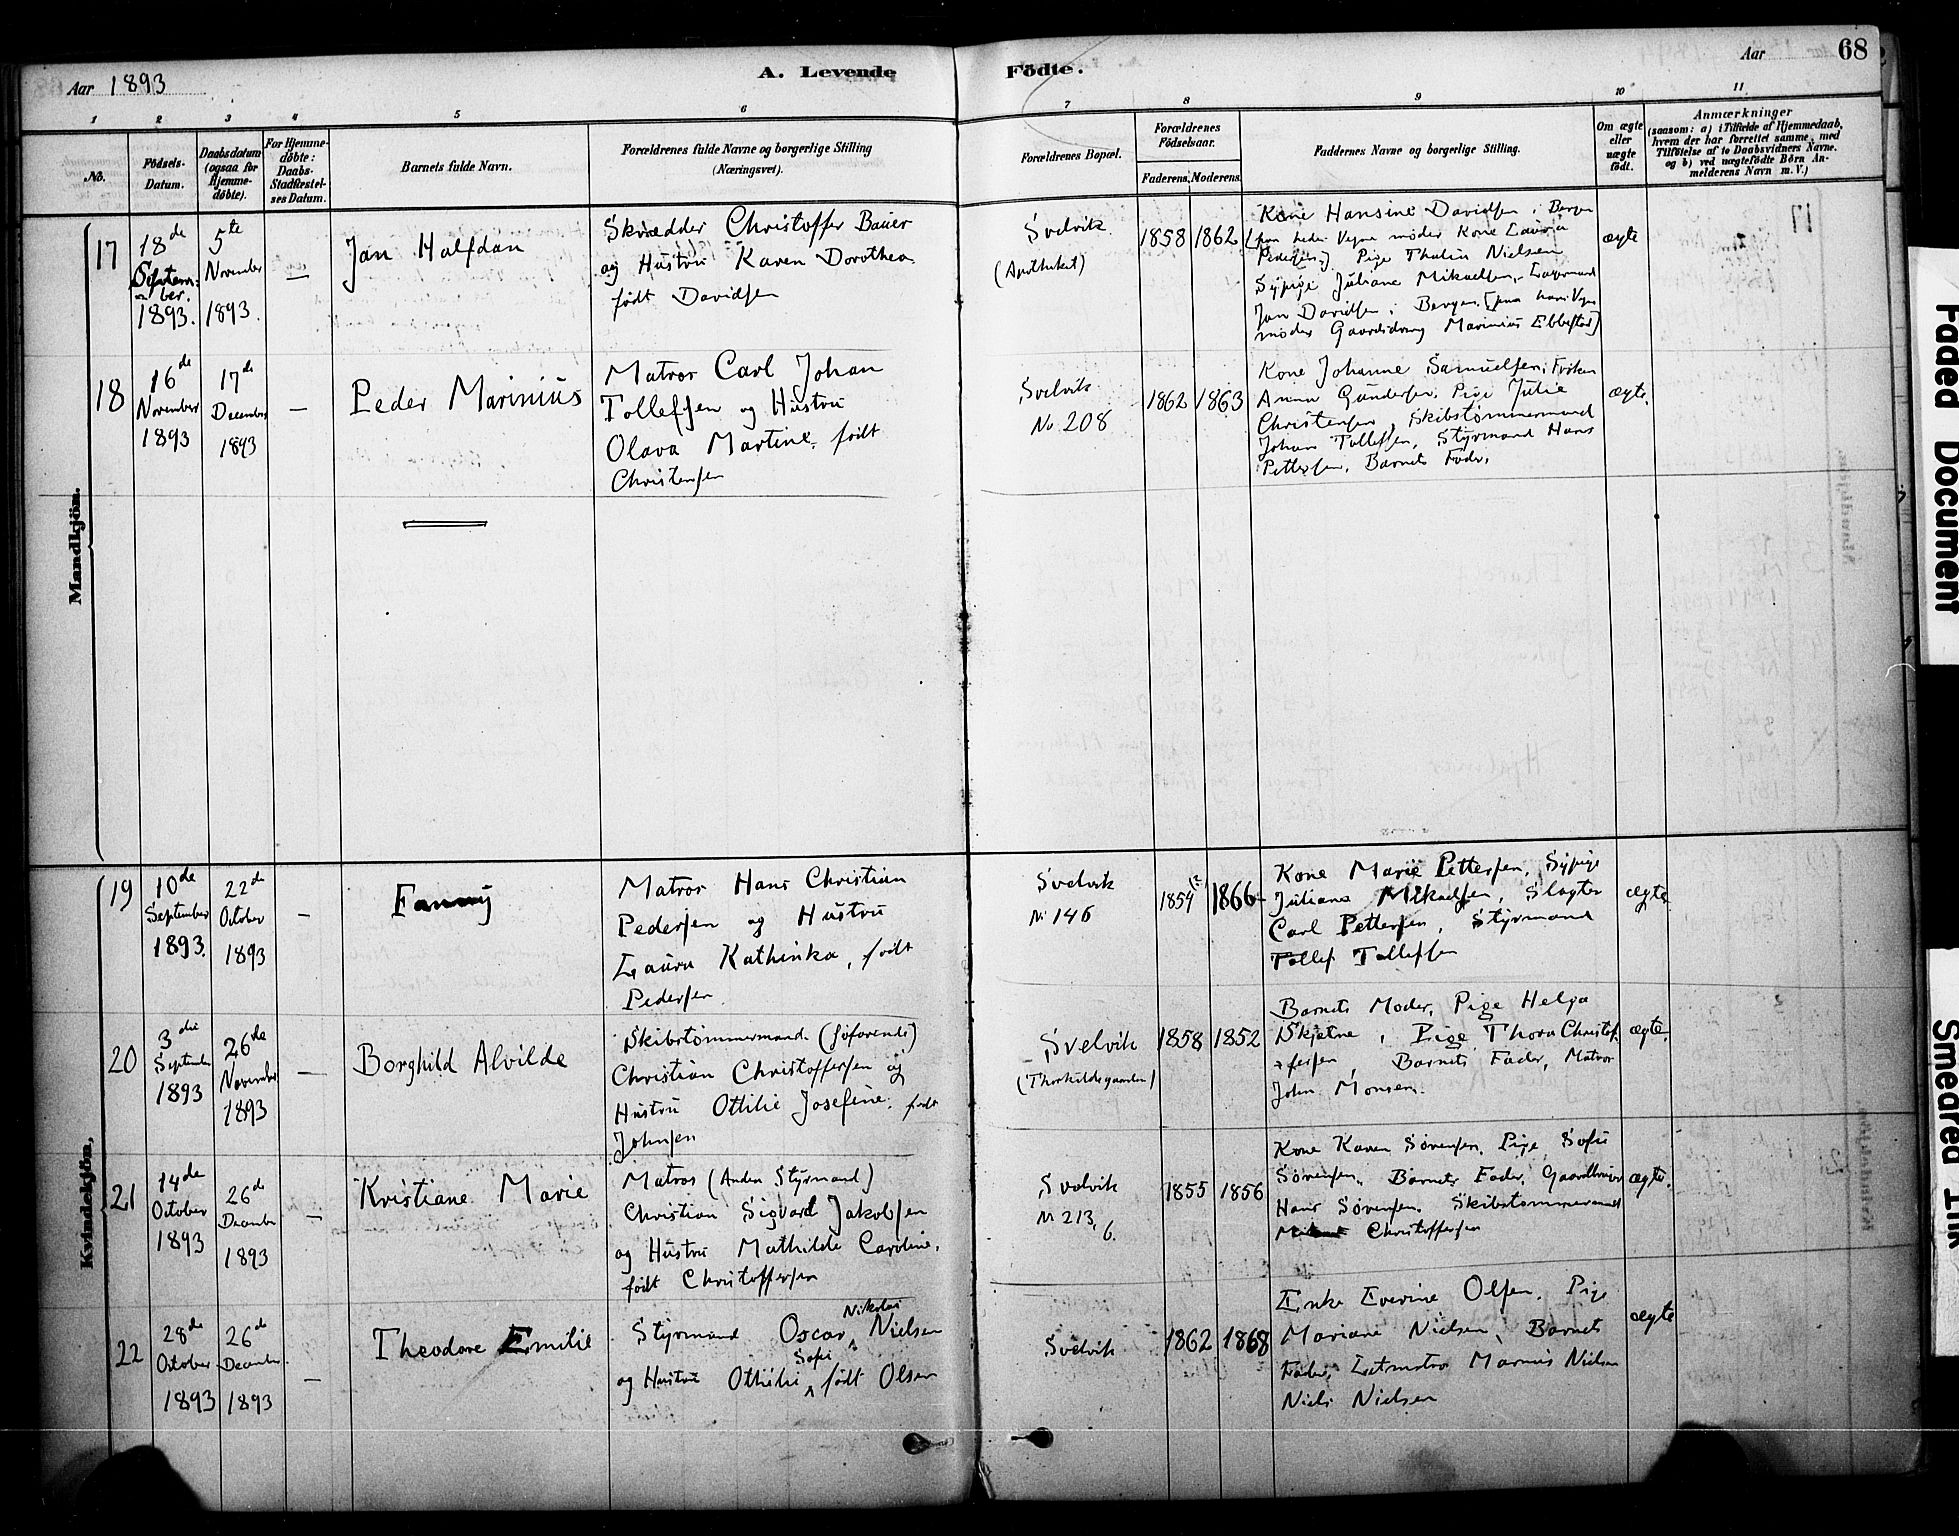 Aar 1893
A. Levende Födte.
Aar
68
1
2
3
4
5
6
7
8
9
10
11
No.
Födsels-
Datum.
Daabsdatum
(ogsaa for
Hjemme-
döbte).
For Hjemme-
döbte:
Daabs-
Stadfæstel-
ses Datum.
Barnets fulde Navn.
Forældrenes fulde Navne og borgerlige Stilling
(Næringsvei).
Forældrenes Bopæl.
Forældrenes
Födselsaar.
Faderens.
Moderens.
Faddernes Navne og borgerlige Stilling.
Om ægte
eller
uægte
födt.
Anmærkninger
(saasom: a) i Tilfælde af Hjemmedaab,
hvem der har forrettet samme, med
Tilföielse af to Daabsvidners Navne,
og b) ved uægtefödte Börn An-
melderens Navn m. V.)
Mandkjön.
17
18de
Septem-
ber.
1893.
5te
November
1893.
—
Jan Halfdan
Skrædder Christoffer Bauer
og Hustru Karen Dorothea
født Davidsen
Svelvik
(Apotheket)
1858
1862
Kone Hansine Davidsen i Bergen
[paa hedes Vegne møder Kone Laura
Pedersen], Pige Thalia Nielsen
Sypige Juliane Mikaelsen,
Jan Davidsen i Bergen [paa hans Vegne
møder Gaardsdreng Marinius Ebbestad]
ægte
18
16de
November
1893
17de
December
1893
—
Peder Marinius
Matros Carl Johan
Tollefsen og Hustru
Olava Martine, født
Christensen
Svelvik
No 208
1862
1863
Kone Johanne Samuelsen, Frøken
Anna Gundersen, Pige Julie
Christensen, Skibstømmermand
Johan Tollefsen, Styrmand Hans
Pettersen, Barnets Fader.
ægte.
Kvindekjön,
19
10de
September
1893.
22de
October
1893
—
Fanny
Matros Hans Christian
Pedersen og Hustru
Laura Kathinka, født
Pedersen
Svelvik
No 146
1854 (?)
1866
Kone Marie Pettersen, Sypige
Juliane Mikaelsen, Slagter
Carl Pettersen, Styrmand
Tollef Tollefsen
ægte
20
3die
September
1893
26de
November
1893
—
Borghild Alvilde
Skibstømmermand (søfarende)
Christian Christoffersen og
Hustru Ottilie Josefine, født
Johnsen
Svelvik
(Thorkildsgaarden)
1858
1852
Barnets Moder, Pige Helga
Skjelne, Pige Thora Christof-
fersen, Barnets Fader, Matros
John Monsen.
ægte
21
14de
October
1893
26de
December
1893
—
Kristiane Marie
Matros (Anden Styrmand)
Christian Sigvard Jakobsen
og Hustru Mathilde Caroline,
født Christoffersen
Svelvik
No 213, 6.
1855
1856
Kone Karen Sørensen, Pige Sofie
Sørensen, Barnets Fader, Gaardbruger
Hans Sørensen, Skibstømmermand
Christoffersen
ægte.
22
28de
October
1893
26de
December
1893
—
Theodore Emilie
Nikolai
Styrmand Oscar Nielsen
Sofie
og Hustru Othilie født Olsen
Svelvik
1862
1868
Enke Everine Olsen, Pige
Mariane Nielsen, Barnets
Fader, Letmatros Marius Nielsen
Niels Nielsen
ægte
Faded Document
Smeared Ink